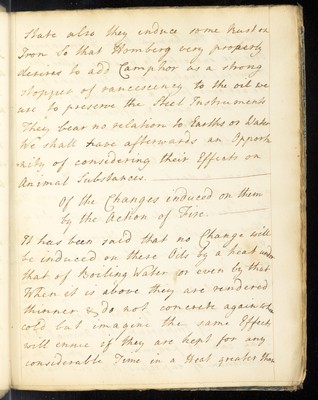 State also they induce some Rust on
Iron So that Homberg very properly
desires to add Camphor as a strong
stopper of rancescency to the oil we
use to preserve the Steel Instruments
They bear no relation to Earths or Water
We shall have afterwards an Opportu
nity of considering their Effects on
Animal Substances.
Of the Changes induced on them
by the Action of Fire.
It has been said that no Change will
be induced on these Oils by a heat under
that of Boiling Water or even by that
When it is above they are rendered
thinner & do not concrete again when
cold but imagine the same Effects
will ensue if they are kept for any
considerable Time in a Heat greater than